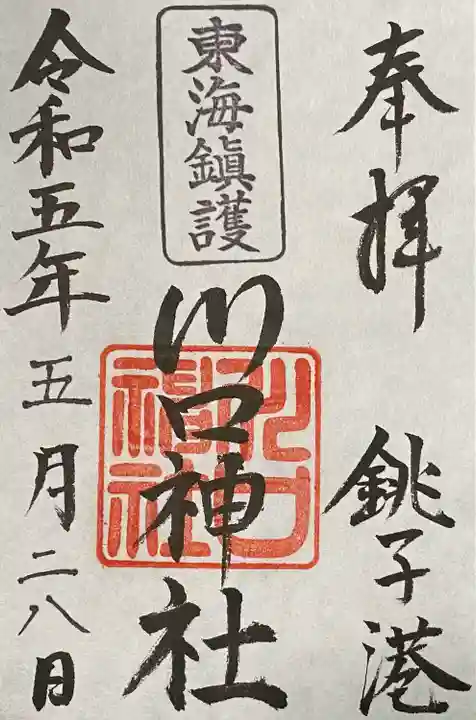 奉拝
銚子港
東海鎮護
川口神社
川口神社
令和五年五月二八日